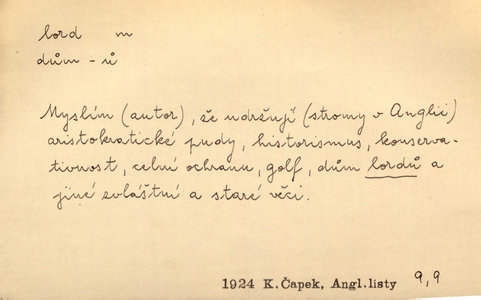 lord m
dům - ů
Myslím (autor), že udržují (stromy v Anglii)
aristokratické pudy, historismus, konserva-
tivnost, celní ochranu, golf, dům lordů a
jiné zvláštní a staré věci.
1924 K.Čapek, Angl.listy 9,9